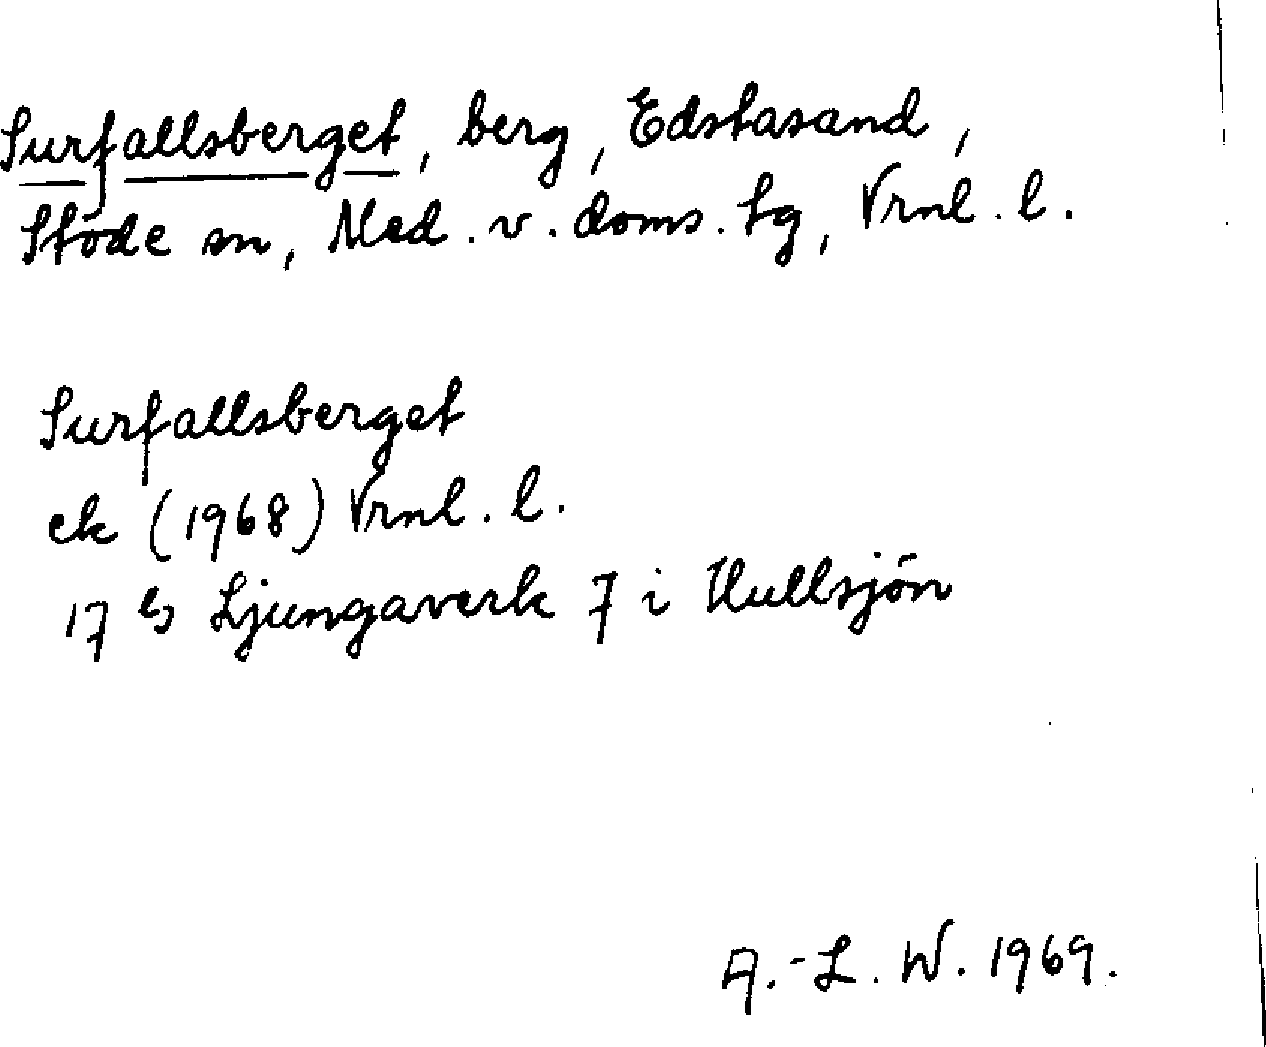 Surfallsberget, berg, Edstasand,
Stöde sn, Med. v. doms. tg, Vrnl. l.
Surfallsberget
ek (1968) Vrnl. l.
17 G Ljungaverk 7 i Hullsjön
A.-L. W. 1969.